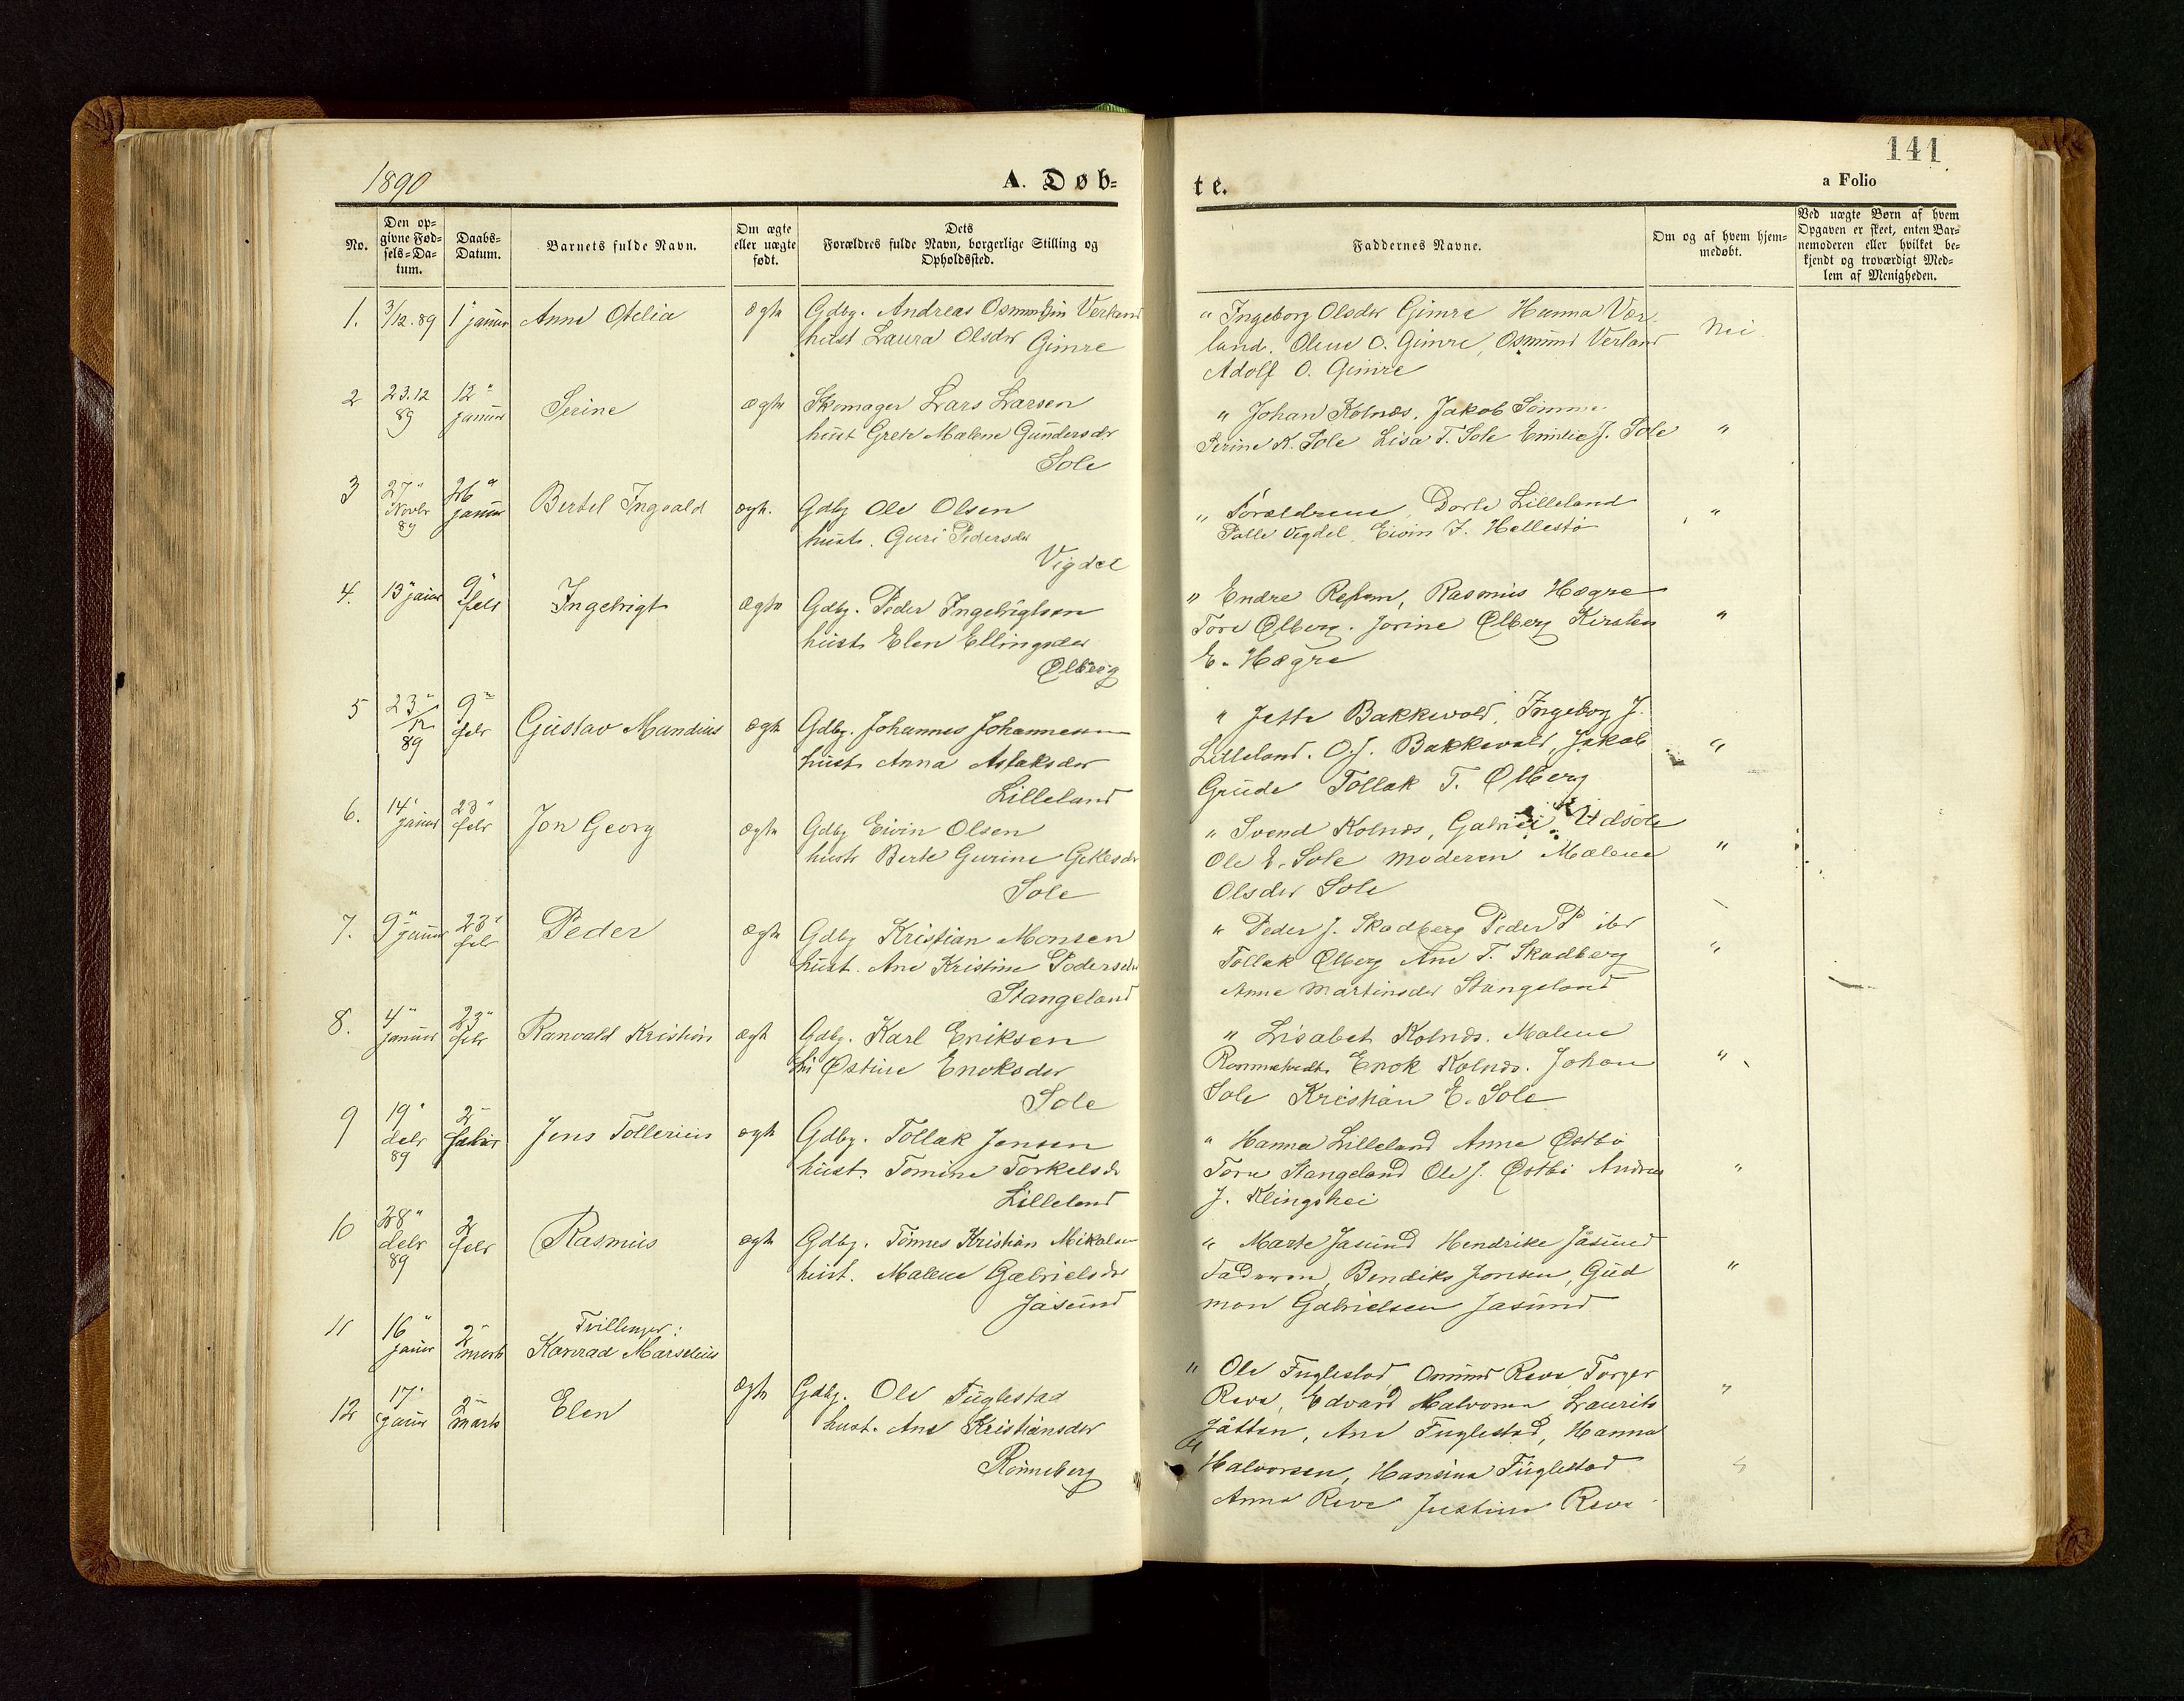 1890
A. Døb=
te.
141
a Folio
No.
Den op=
givne Fød=
sels=Da=
tum.
Daabs=
Datum.
Barnets fulde Navn.
Om ægte
eller uægte
født.
Dets
Forældres fulde Navn, borgerlige Stilling og
Opholdssted.
Faddernes Navne.
Om og af hvem hjem=
medøbt.
Ved uægte Børn af hvem
Opgaven er skeet, enten Bar=
nemoderen eller hvilket be=
kjendt og troværdigt Med=
lem af Menigheden.
1. 3/12.89 1 januar Anna Otelia ægte Gdbg. Andreas Verland
hust Laura Olsdtr Gimre
" Ingeborg Olsdtr Gimre Hanna Ver
land. Olene O. Gimre, Osmund Verland Nei
Adolf O. Gimre
2 23.12 89 12" januar Serine ægte Skomager Lars Larsen
hust Grete Malene Gundersdtr
Sole
" Johan Kolnæs. Jakob Sømme
Serine K. Sole Lisa T. Sole Emilie J. Sole "
3 27" Novbr 89 26" januar Bertel Ingvald ægt. Gdbg Ole Olsen
hust. Guri Pedersdtr
Vigdel
" Forældrene, Dorte Lilleland
Palle Vigdel, Eivin J. Hellestø "
4. 13" januar 9" febr Ingebrigt ægte Gdbg. Peder Ingebrigtsen
hust Elen Ellingsdtr
Ølberg
" Endre Risken, Rasmus Hægre
Tore Ølberg. Jorine Ølberg Kirsten "
E. Hægre
5 23"/12 89 9" febr Gustav Mandius ægte Gdbg. Johannes Johannesen
hust Anna Aslaksdtr
Lilleland
" Jette Bakkevold, Ingeborg J.
Lilleland. O.J. Bakkevold, Jakob "
Grude Tollak T. Ølberg
6. 14" januar 23" febr Jon Georg ægte Gdbg Eivin Olsen
hust Berte Gurine
Sole
" Svend Kolnæs, Gabriel Udsole
Ole E. Sole moderen Malene "
Olsdtr Sole
7. 9" januar 23" febr Peder ægte Gdbg Kristian Monsen
hust. Ane Kristine Pedersdtr
Stangeland
" Peder J. Skadberg Peder P ibd
Tollak Ølberg Ane T. Skadberg "
Anne Martinsdtr Stangeland
8. 4" januar 23" febr Ranvald Kristian ægt Gdbg. Karl Eriksen
hu Østine Enoksdtr
Sole
" Lisabet Kolnæs. Malene
Enok Kolnæs. Johan "
Sole Kristian E. Sole
9 19" debr 89 2" februar Jens Tollerius ægte Gdbg. Tollak Jensen
hust. Tomine Torkelsdtr
Lilleland
" Hanna Lilleland Anna Østbø
Tore Stangeland Ole J. Østbø Andrea "
J. Klingshei
10 28" debr 89 2 febr Rasmus ægte Gdbg. Tønnes Kristian Mikalsen
hust. Malene Gabrielsdtr
Jåsund
" Marte Jasund Hendrike Jåsund
Faderen, Bendiks Jonsen, Gud "
mon Gabrielsen Jasund
Tvillinger:
11 16" januar 2" marts Konrad Marselius
12 17" januar 2" marts Elen ægte Gdbg. Ole Fuglestad
hust. Ane Kristiansdtr
Rønneberg
" Ole Fuglestad, Osmund Reve, Torger
Reve, Edvard Halvorsen, Laurits "
Jåtten, Ane Fuglestad, Hanna
Halvorsen, Hansina Fuglestad "
Anna Reve Justine Reve